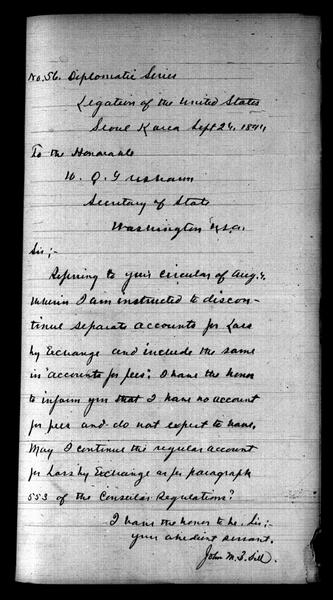 No. 56. Diplomatic Series
Legation of the United States
Seoul Korea Sept 24, 1894
To the Honorable
W. Q. Gresham
Secretary of State
Washington U.S.A.
Sir;-
Refering to your circular of Aug. 4.
wherin I am instructed to discon-
tinue separate accounts for Loss
by Exchange and include the same
in "accounts for fees". I have the honor
to inform you that I have no account
for fees and do not expect to have.
May I continue the regular account
for Loss by Exchange as per paragraph
553 of the Consular Regulations?
I have the honor to be, Sir;-
your obedient servant.
John M. B. Sill.